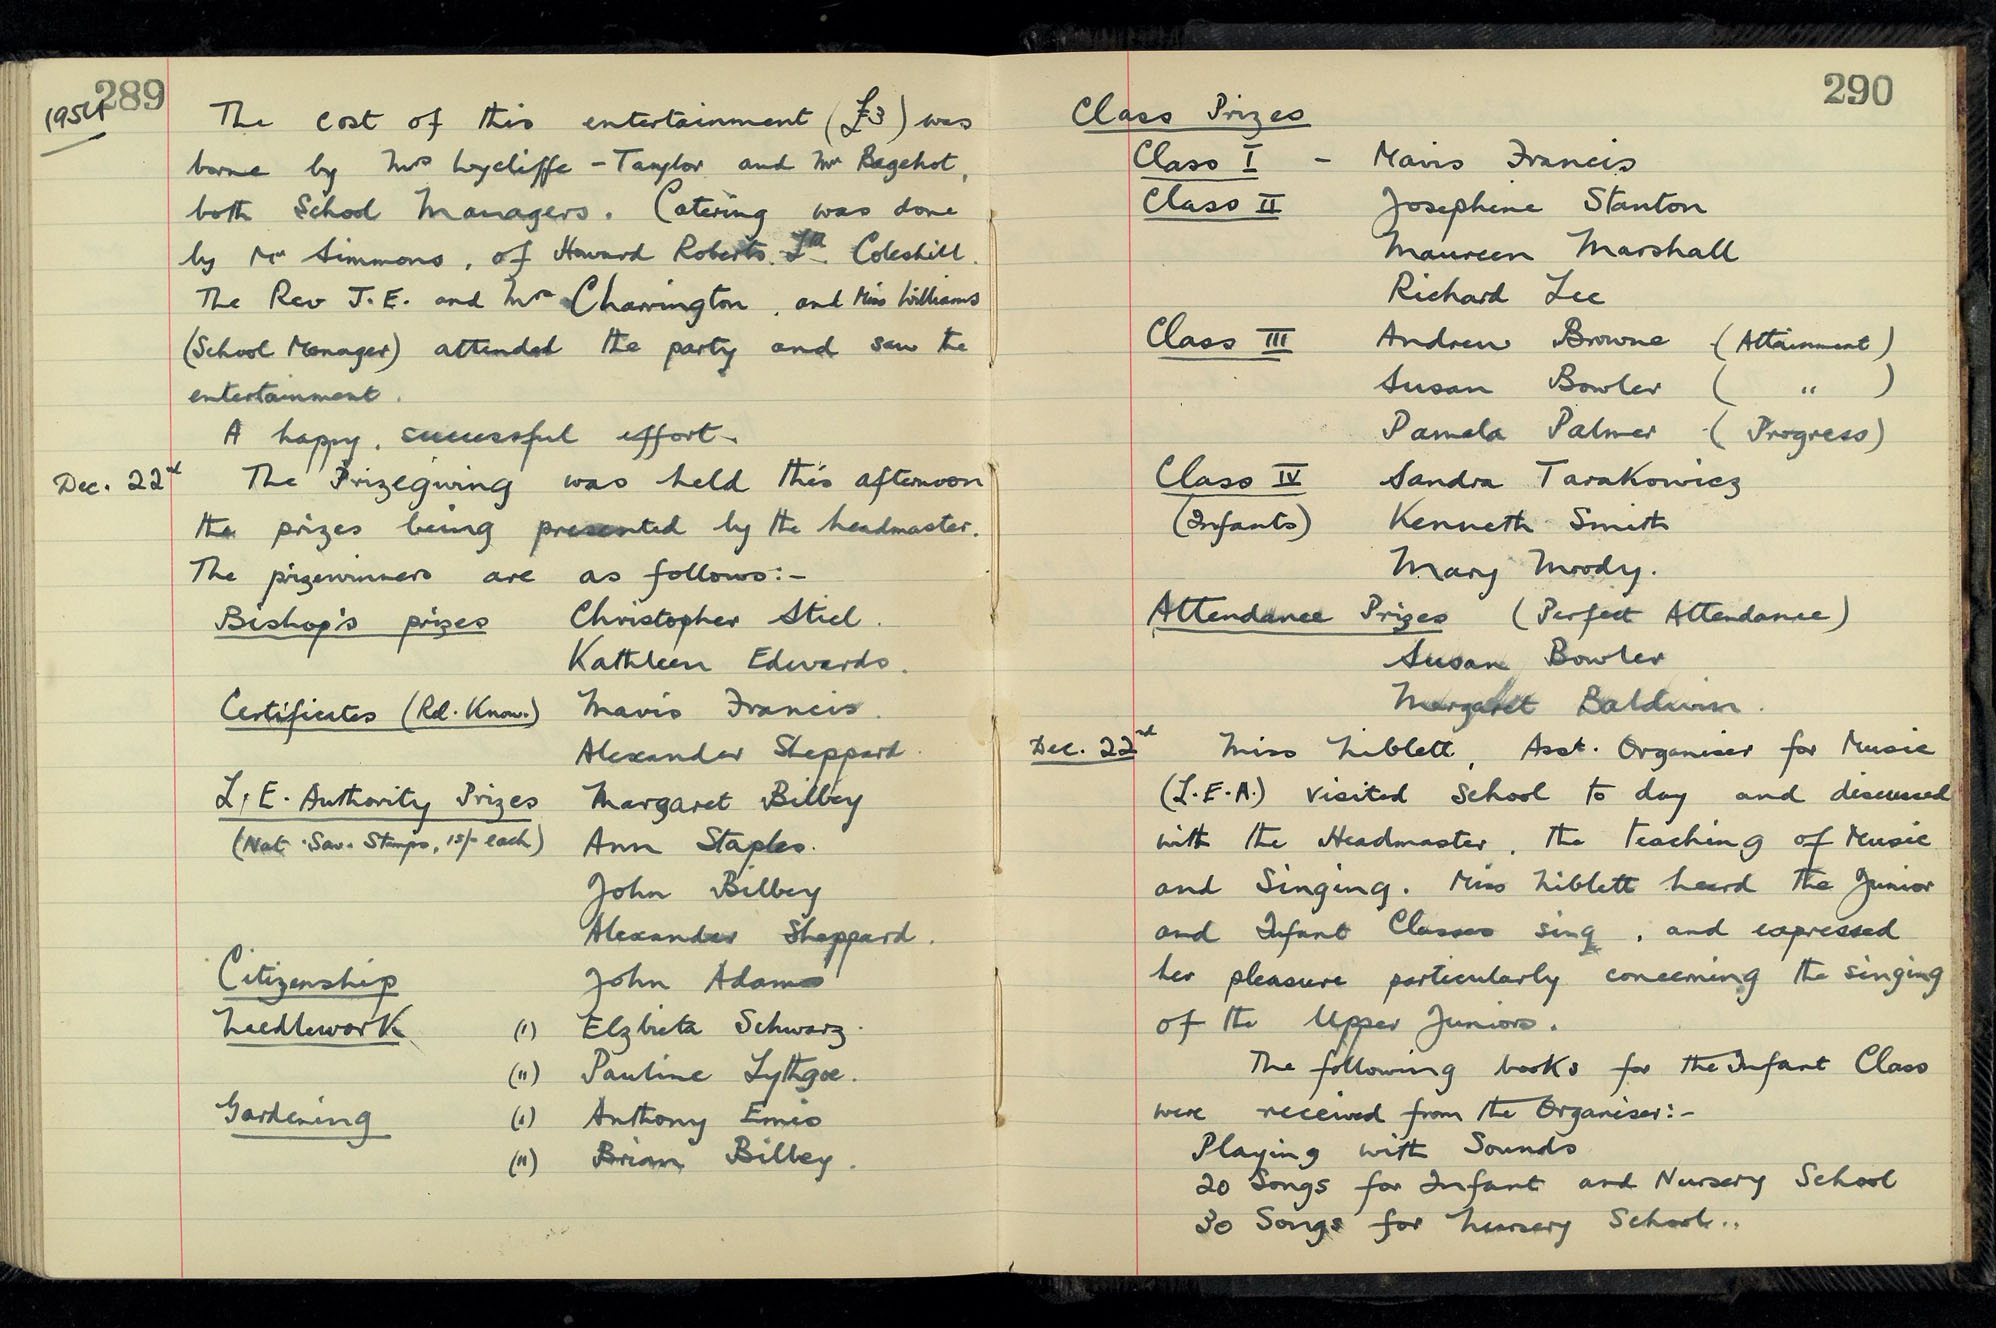 289
1954
The cost of this entertainment (£3) was
borne by Mrs Wycliffe-Taylor and Mr Bagehot,
both School Managers. Catering was done
by Mr Simmons, of Howard Roberts Ltd. Coleshill.
The Rev J.E. and Mrs Charrington, and Miss Williams
(School Manager) attended the party and saw the
entertainment.
A happy, successful effort.
Dec. 22nd The Prizegiving was held this afternoon
the prizes being presented by the headmaster.
The prizewinners are as follows:-
Bishop's prizes Christopher Stiel.
Kathleen Edwards.
Certificates (Rel. Know.) Mavis Francis.
Alexander Sheppard.
L.E. Authority Prizes Margaret Bilbey
(Nat. Sav. Stamps, 15/- each) Ann Staples.
John Bilbey
Alexander Sheppard.
Citizenship John Adams
Needlework (i) Elzbieta Schwarz.
(ii) Pauline Lythgoe.
Gardening (i) Anthony Ennis
(ii) Brian Bilbey.
290
Class Prizes
Class I - Mavis Francis
Class II Josephine Stanton
Maureen Marshall
Richard Lee
Class III Andrew Browne (Attainment)
Susan Bowler ( " )
Pamela Palmer (Progress)
Class IV Sandra Tarakowicz
(Infants) Kenneth Smith
Mary Moody.
Attendance Prizes (Perfect Attendance)
Susan Bowler
Margaret Baldwin.
Dec. 22nd Miss Niblett, Asst. Organiser for Music
(L.E.A.) visited School to day and discussed
with the Headmaster, the teaching of Music
and Singing. Miss Niblett heard the Junior
and Infant Classes sing, and expressed
her pleasure particularly concerning the singing
of the Upper Juniors.
The following books for the Infant Class
were received from the Organiser:-
Playing with Sounds
20 Songs for Infant and Nursery School
30 Songs for Nursery School..